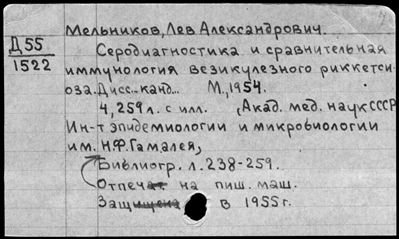 Мельников, Лев Александрович.
Д55
1522
Серодиагностика и сравнительная
иммунология везикулезного риккетси-
оза. Дисс... канд... М., 1954.
4, 259 л. с илл. (Акад. мед. наук СССР
Ин-т эпидемиологии и микробиологии
им. Н.Ф. Гамалея)
Библиогр. л. 238-259.
Отпечат на пиш. маш.
Защищена в 1955 г.